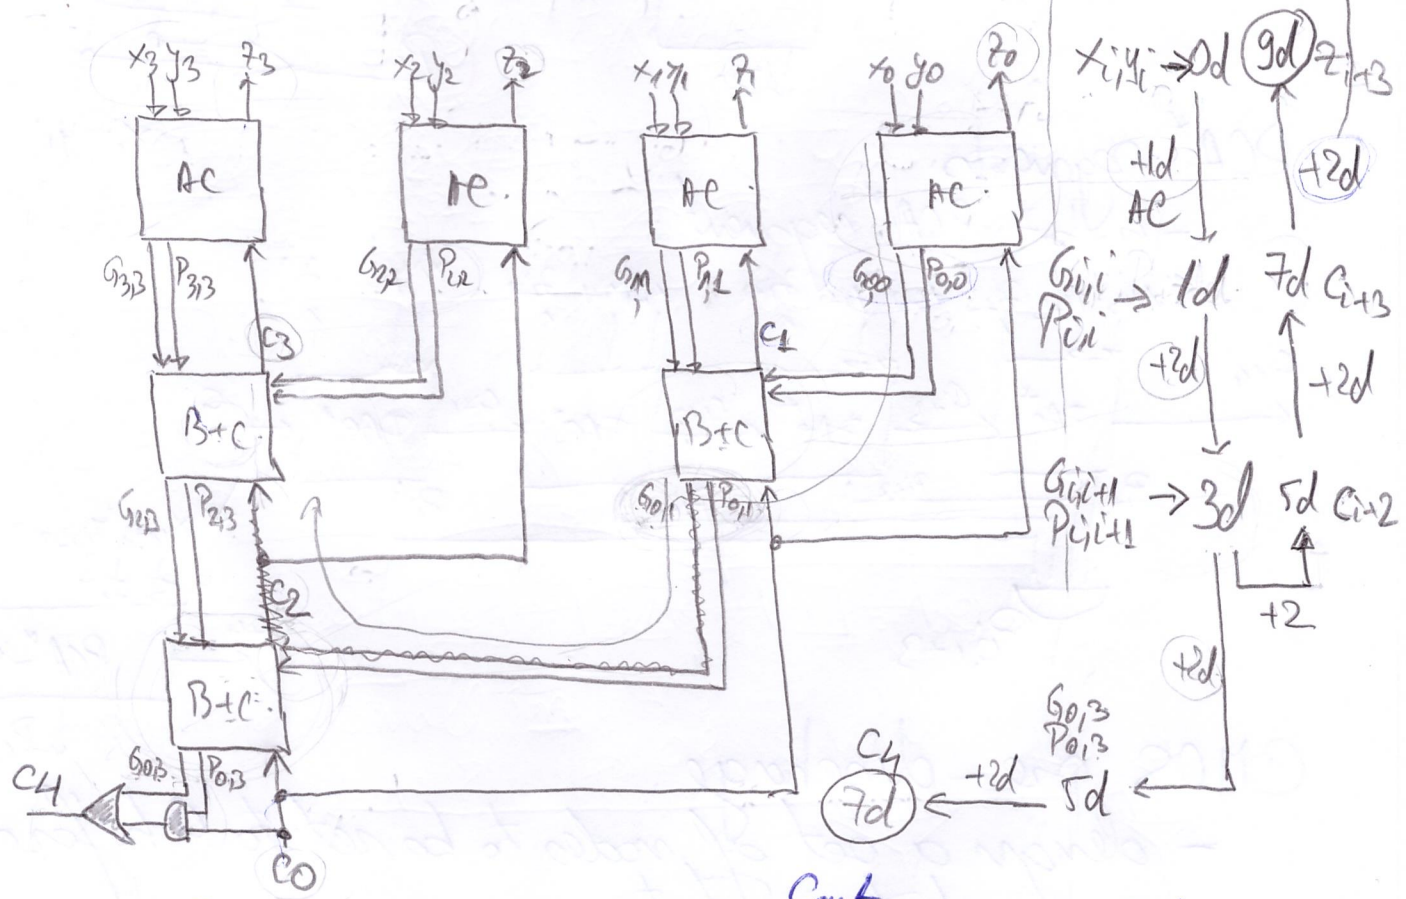 x3 y3 z3
x2 y2 z2
x1 y1 z1
x0 y0 z0
AC
AC
AC
AC
G3,3 P3,3
G2,2 P2,2
G1,1 P1,1
G0,0 P0,0
C3
C1
B+C
B+C
G2,3 P2,3
G0,1 P0,1
C2
B+C
G0,3 P0,3
C4
C0
xi,yi → 0d
9d zi+3
+1d
AC
+2d
Gi,i
Pi,i → 1d
7d Ci+3
+2d
+2d
Gi,i+1
Pi,i+1 → 3d
5d Ci+2
+2
+2d
G0,3
P0,3
C4
7d ← +2d 5d